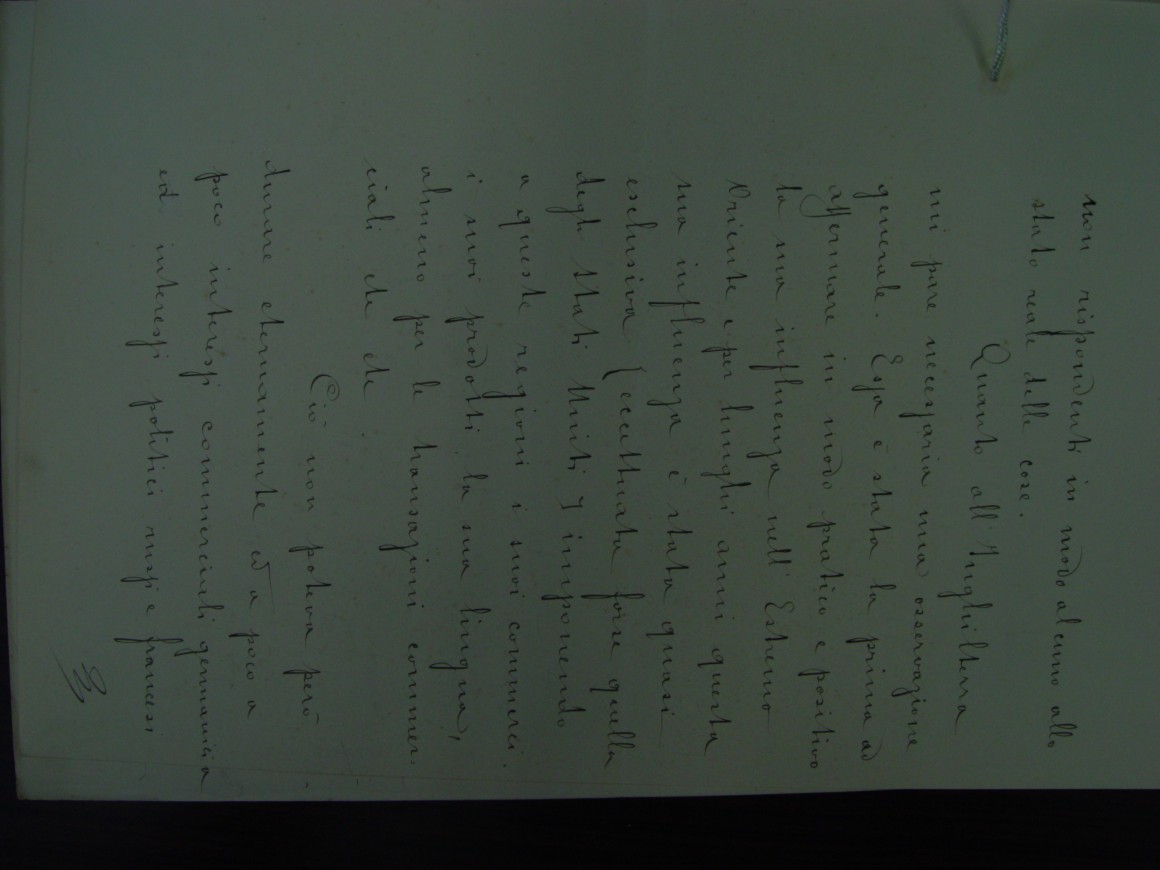 non rispondenti in modo alcuno allo
stato reale delle cose.
Quanto all'Inghilterra
mi pare necessaria una osservazione
generale. Essa è stata la prima ad
affermare in modo pratico e positivo
la sua influenza nell'Estremo
Oriente e per lunghi anni questa
sua influenza è stata quasi
esclusiva (eccettuata forse quella
degli Stati Uniti) imponendo
a queste regioni i suoi commerci.
i suoi prodotti la sua lingua,
almeno per le transazioni commer-
ciali etc etc.
Ciò non poteva però
durare eternamente ed a poco a
poco interessi commerciali germanici
ed interessi politici russi e francesi